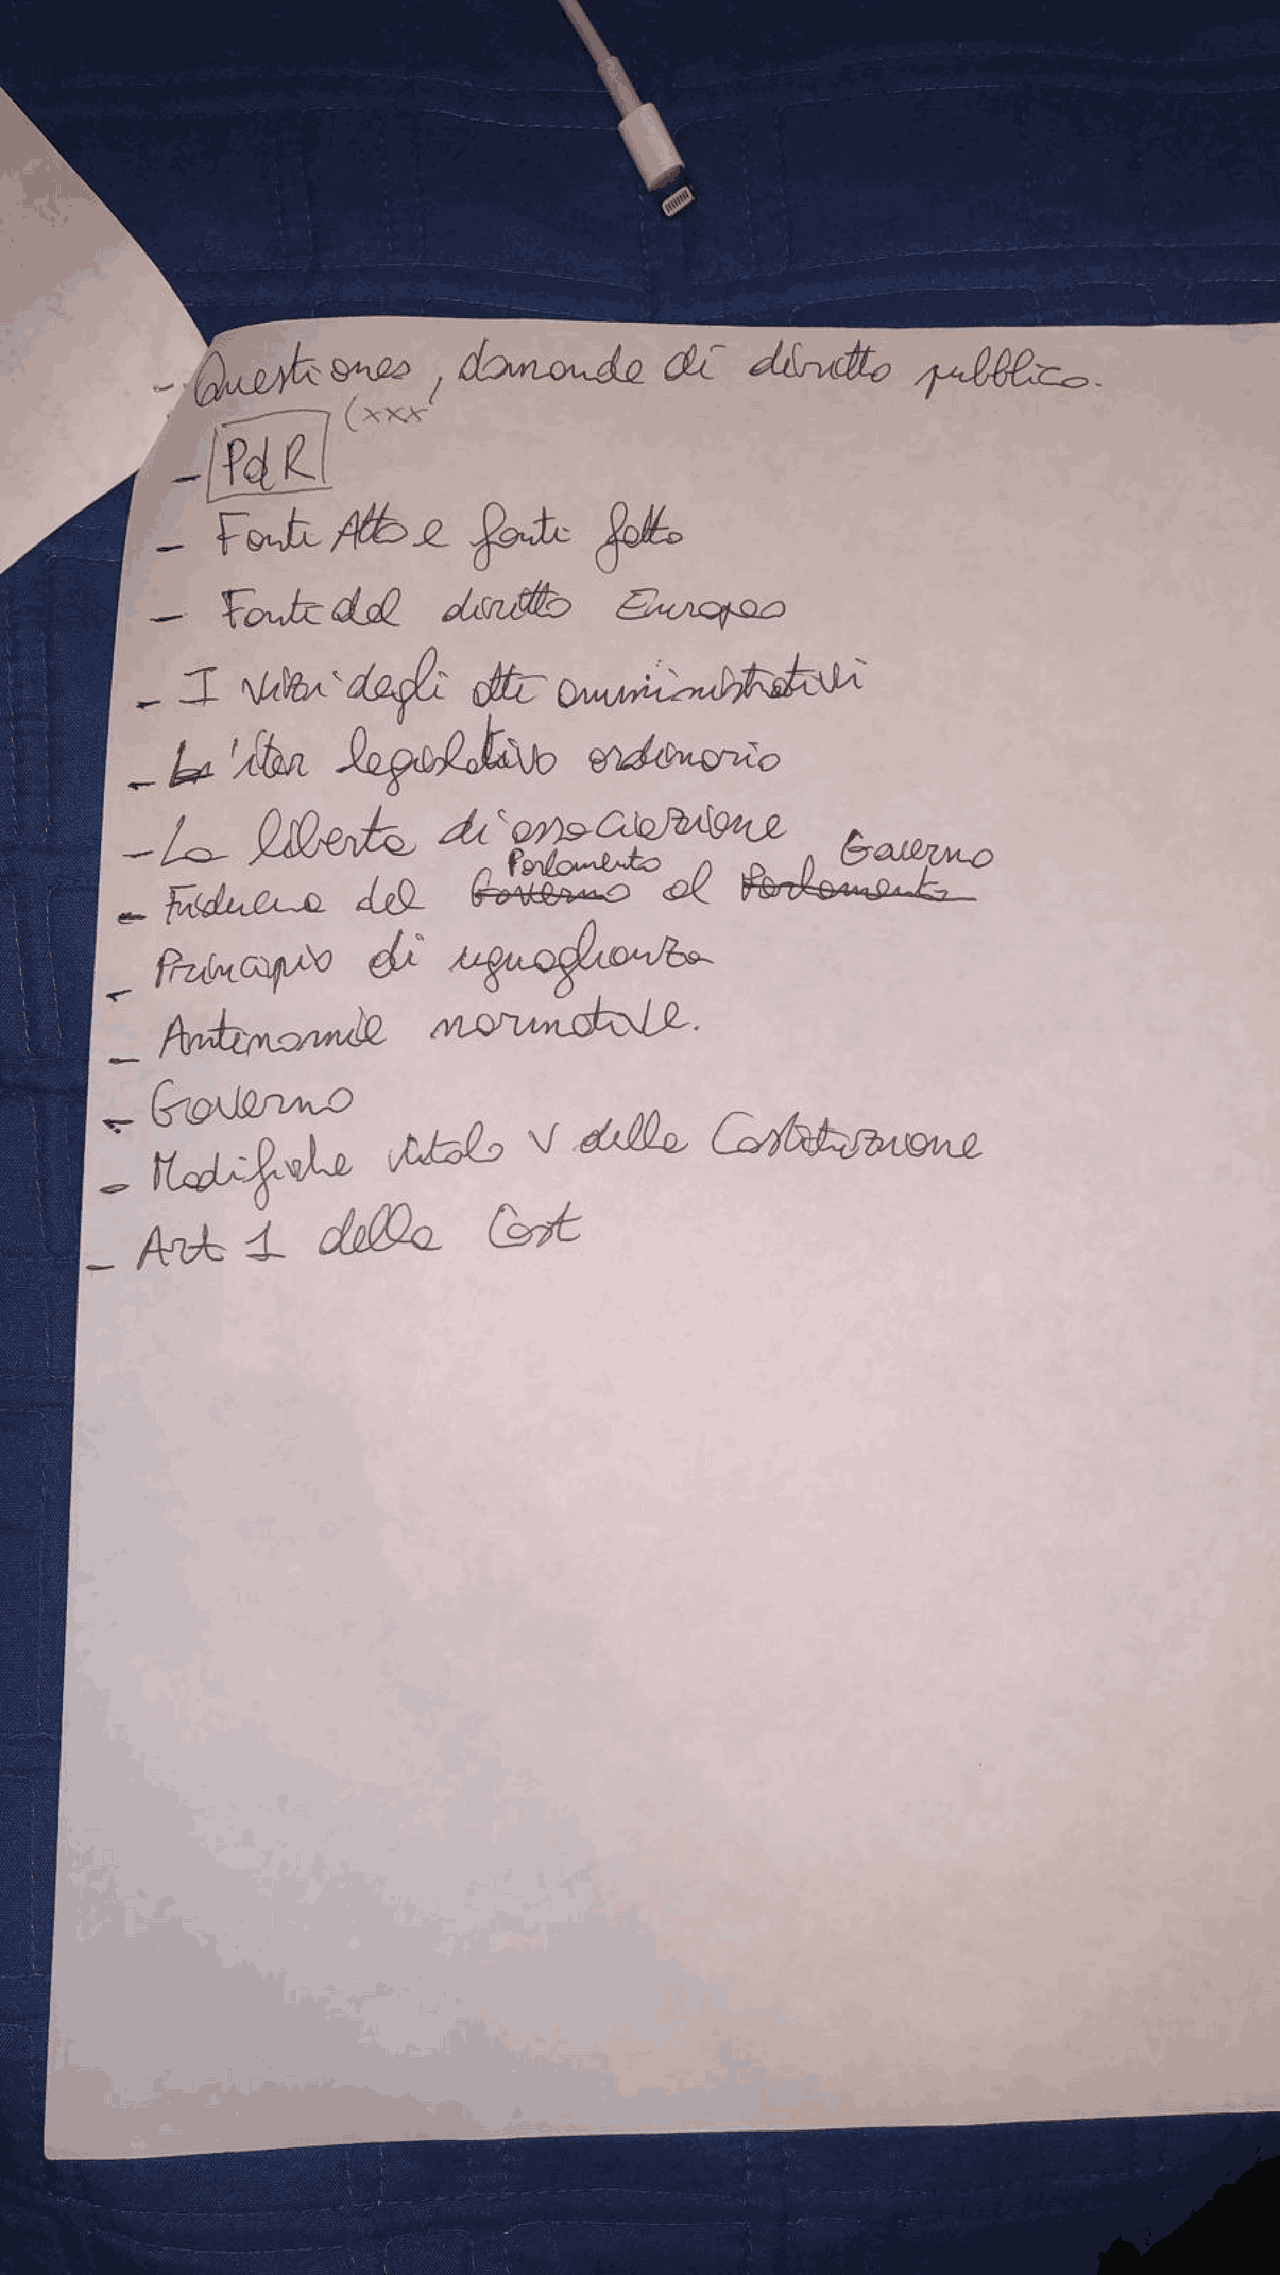 - Questiones, domande di diritto pubblico.
(xxx
- PdR
- Fonti Atto e fonti fatto
- Fonti del diritto Europeo
- I vizi degli atti amministrativi
- L'iter legislativo ordinario
- La libertà di associazione
Parlamento Governo
- Fiducia del Governo al Parlamento
- Principio di uguaglianza
- Antinomie normative.
- Governo
- Modifiche titolo V della Costituzione
- Art 1 della Cost